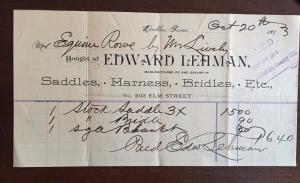 Dallas, Texas, Oct 20th 1893
Mr Equine Rowe by Mr Lively
Bought of EDWARD LEHMAN,
MANUFACTURER OF AND DEALER IN
Saddles, Harness, Bridles, Etc.,
No. 233 ELM STREET
1 Stock Saddle 3X 1500
1 " Bridle 90
1 sga Blanket 50 1640
Paid Edw Lehman